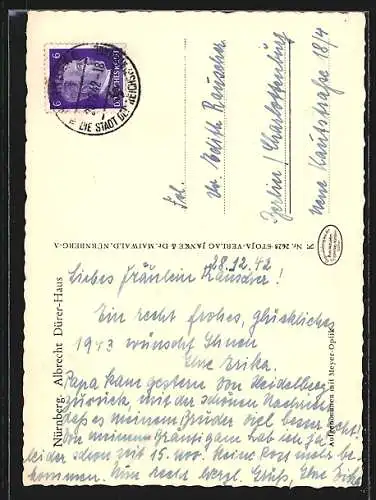 DIE STADT DER REICHS
DEUTSCHES REICH
6 6
Frl.
Dr. Edith Rauscher
Berlin/Charlottenburg
Neue Kantstraße 18/4
N Nr. 2628 STOJA-VERLAG JANKE & Dr. MAIWALD, NÜRNBERG-A
Nürnberg. Albrecht Dürer-Haus
Aufgenommen mit Meyer-Optik
28.12.42
Liebes Fräulein Rauscher!
Ein recht frohes, glückliches
1943 wünscht Ihnen
Ihre Erika.
Papa kam gestern von Heidelberg
zurück mit der schönen Nachricht
daß es meinem Bruder viel besser geht!
Von meinem Bräutigam hab ich ja
leider schon seit 15. Nov. keine Post mehr be-
kommen. Nun recht herzl. Grüße, Ihre Erika